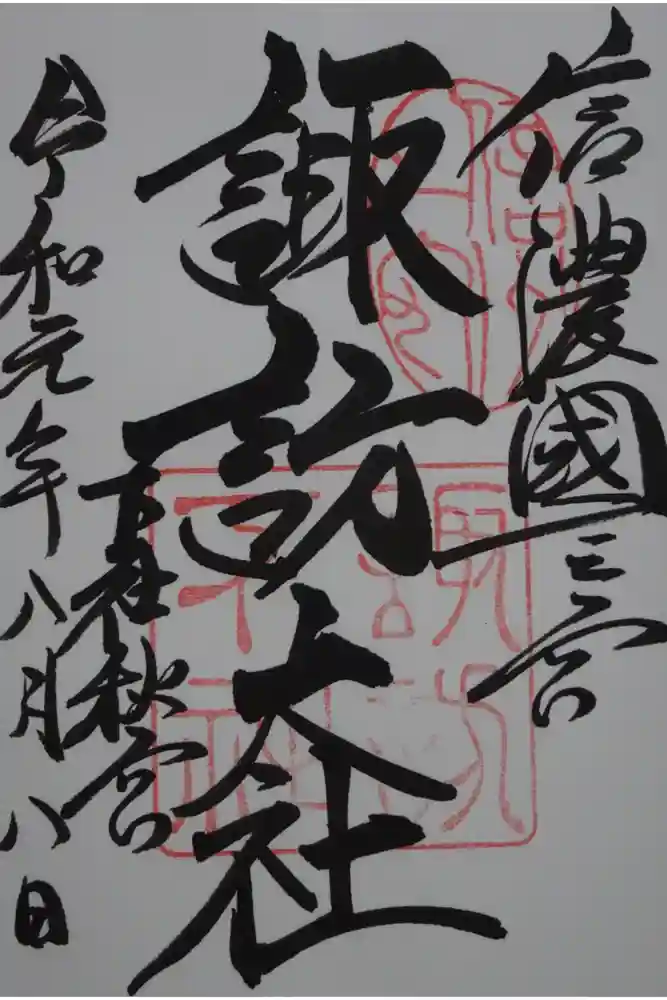 信濃國一之宮
諏訪大社
下社秋宮
令和元年八月八日